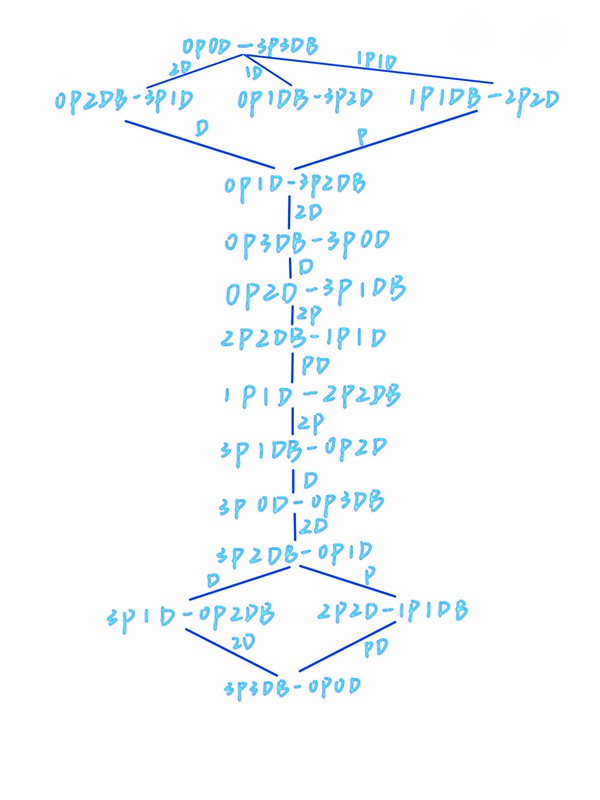 0P0D-3P3DB
2D 1D 1P1D
0P2DB-3P1D 0P1DB-3P2D 1P1DB-2P2D
D P
0P1D-3P2DB
2D
0P3DB-3P0D
D
0P2D-3P1DB
2P
2P2DB-1P1D
PD
1P1D-2P2DB
2P
3P1DB-0P2D
D
3P0D-0P3DB
2D
3P2DB-0P1D
D P
3P1D-0P2DB 2P2D-1P1DB
2D PD
3P3DB-0P0D